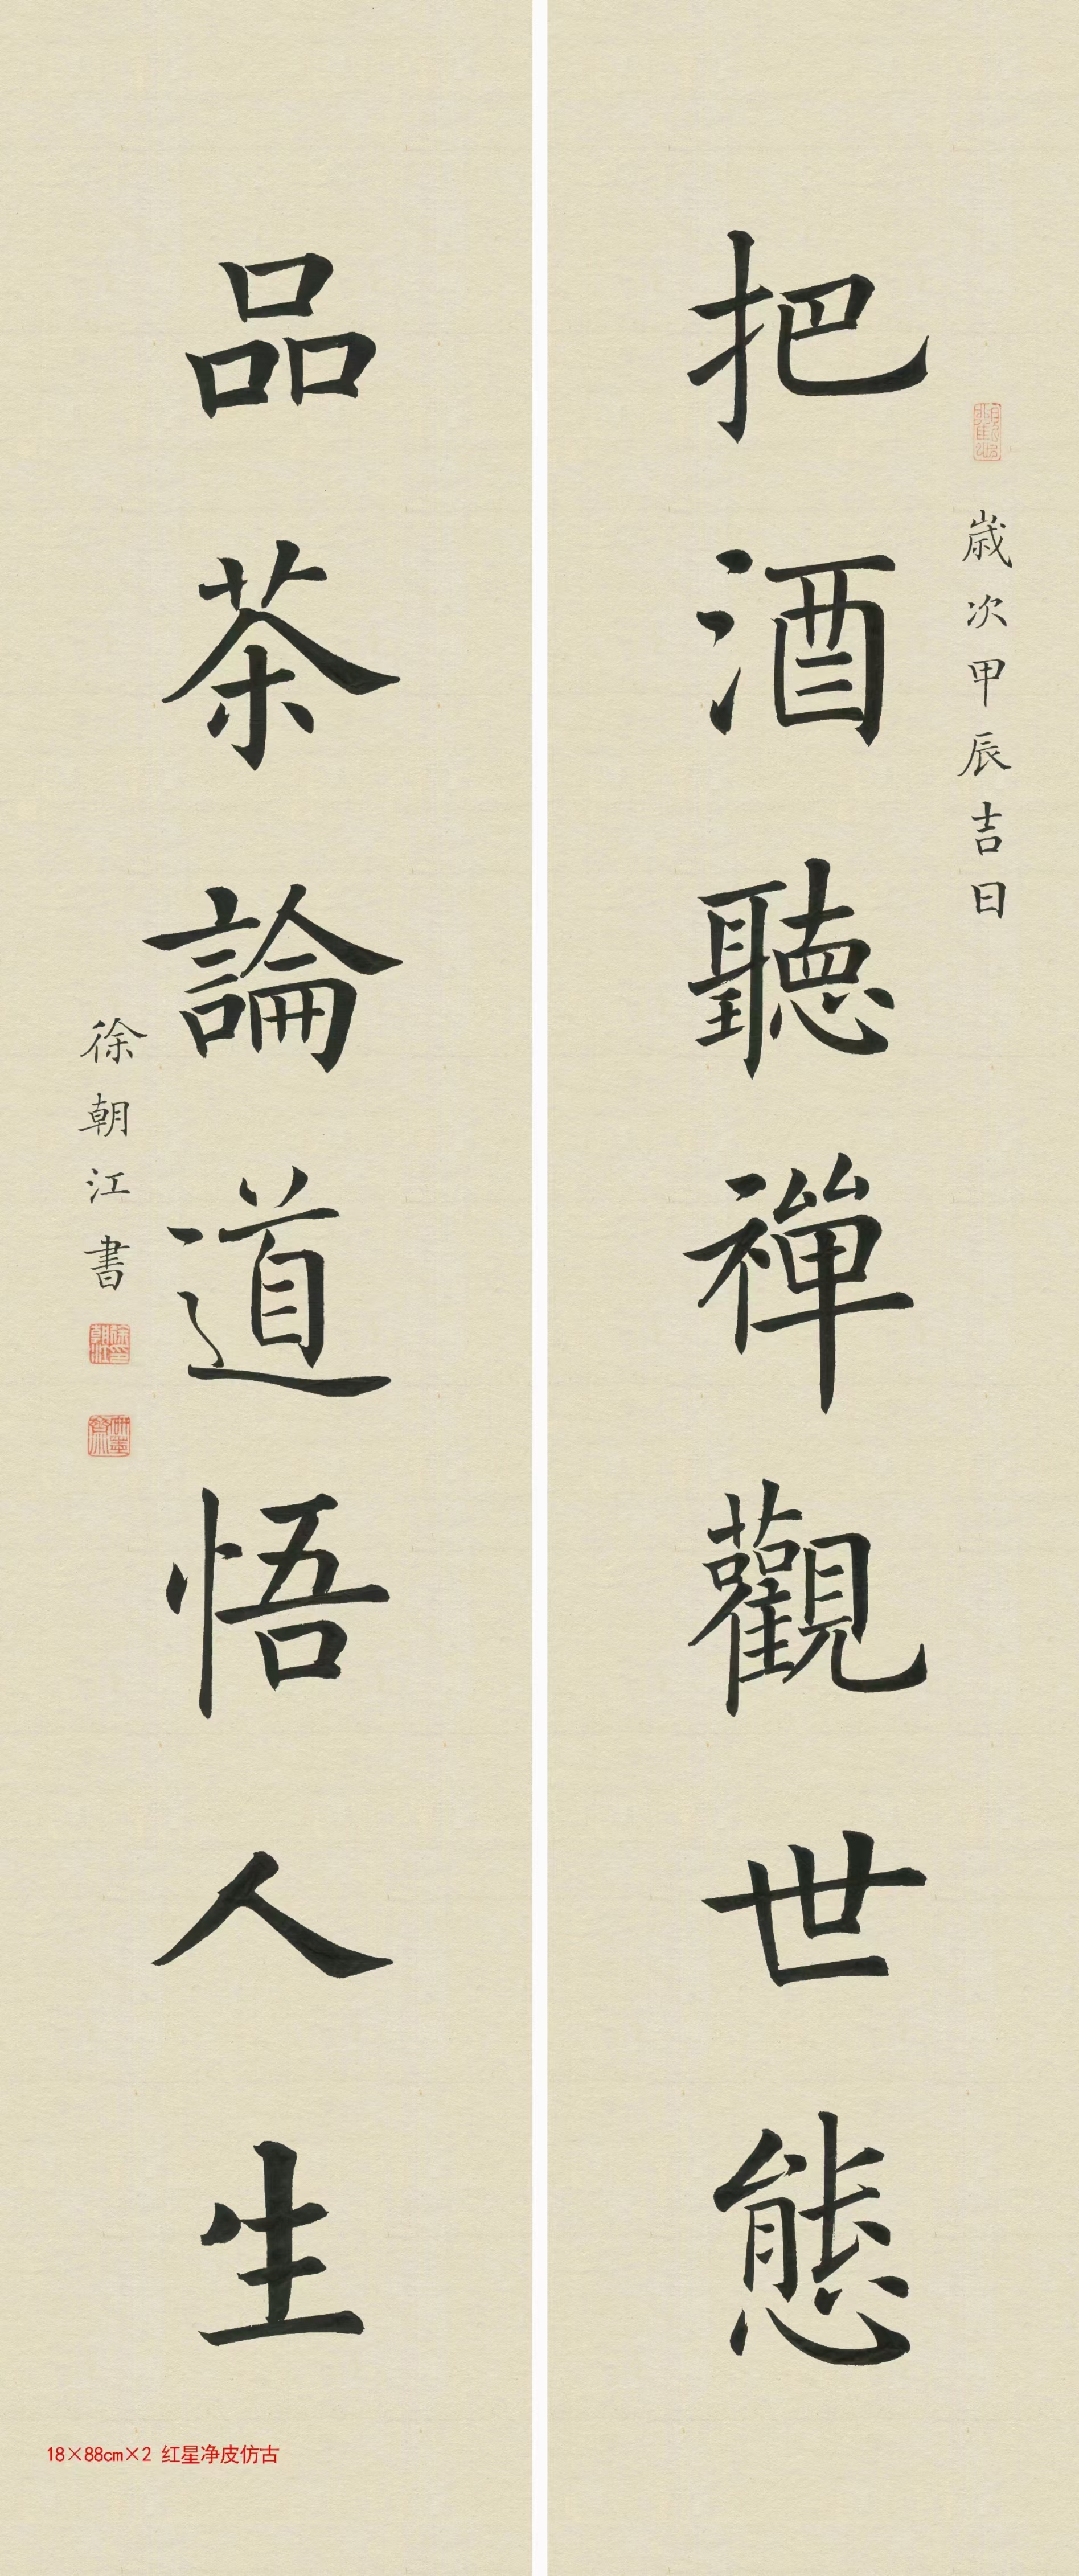 歲次甲辰吉日
把酒聽禪觀世態
品茶論道悟人生
徐朝江書
18×88cm×2 红星净皮仿古